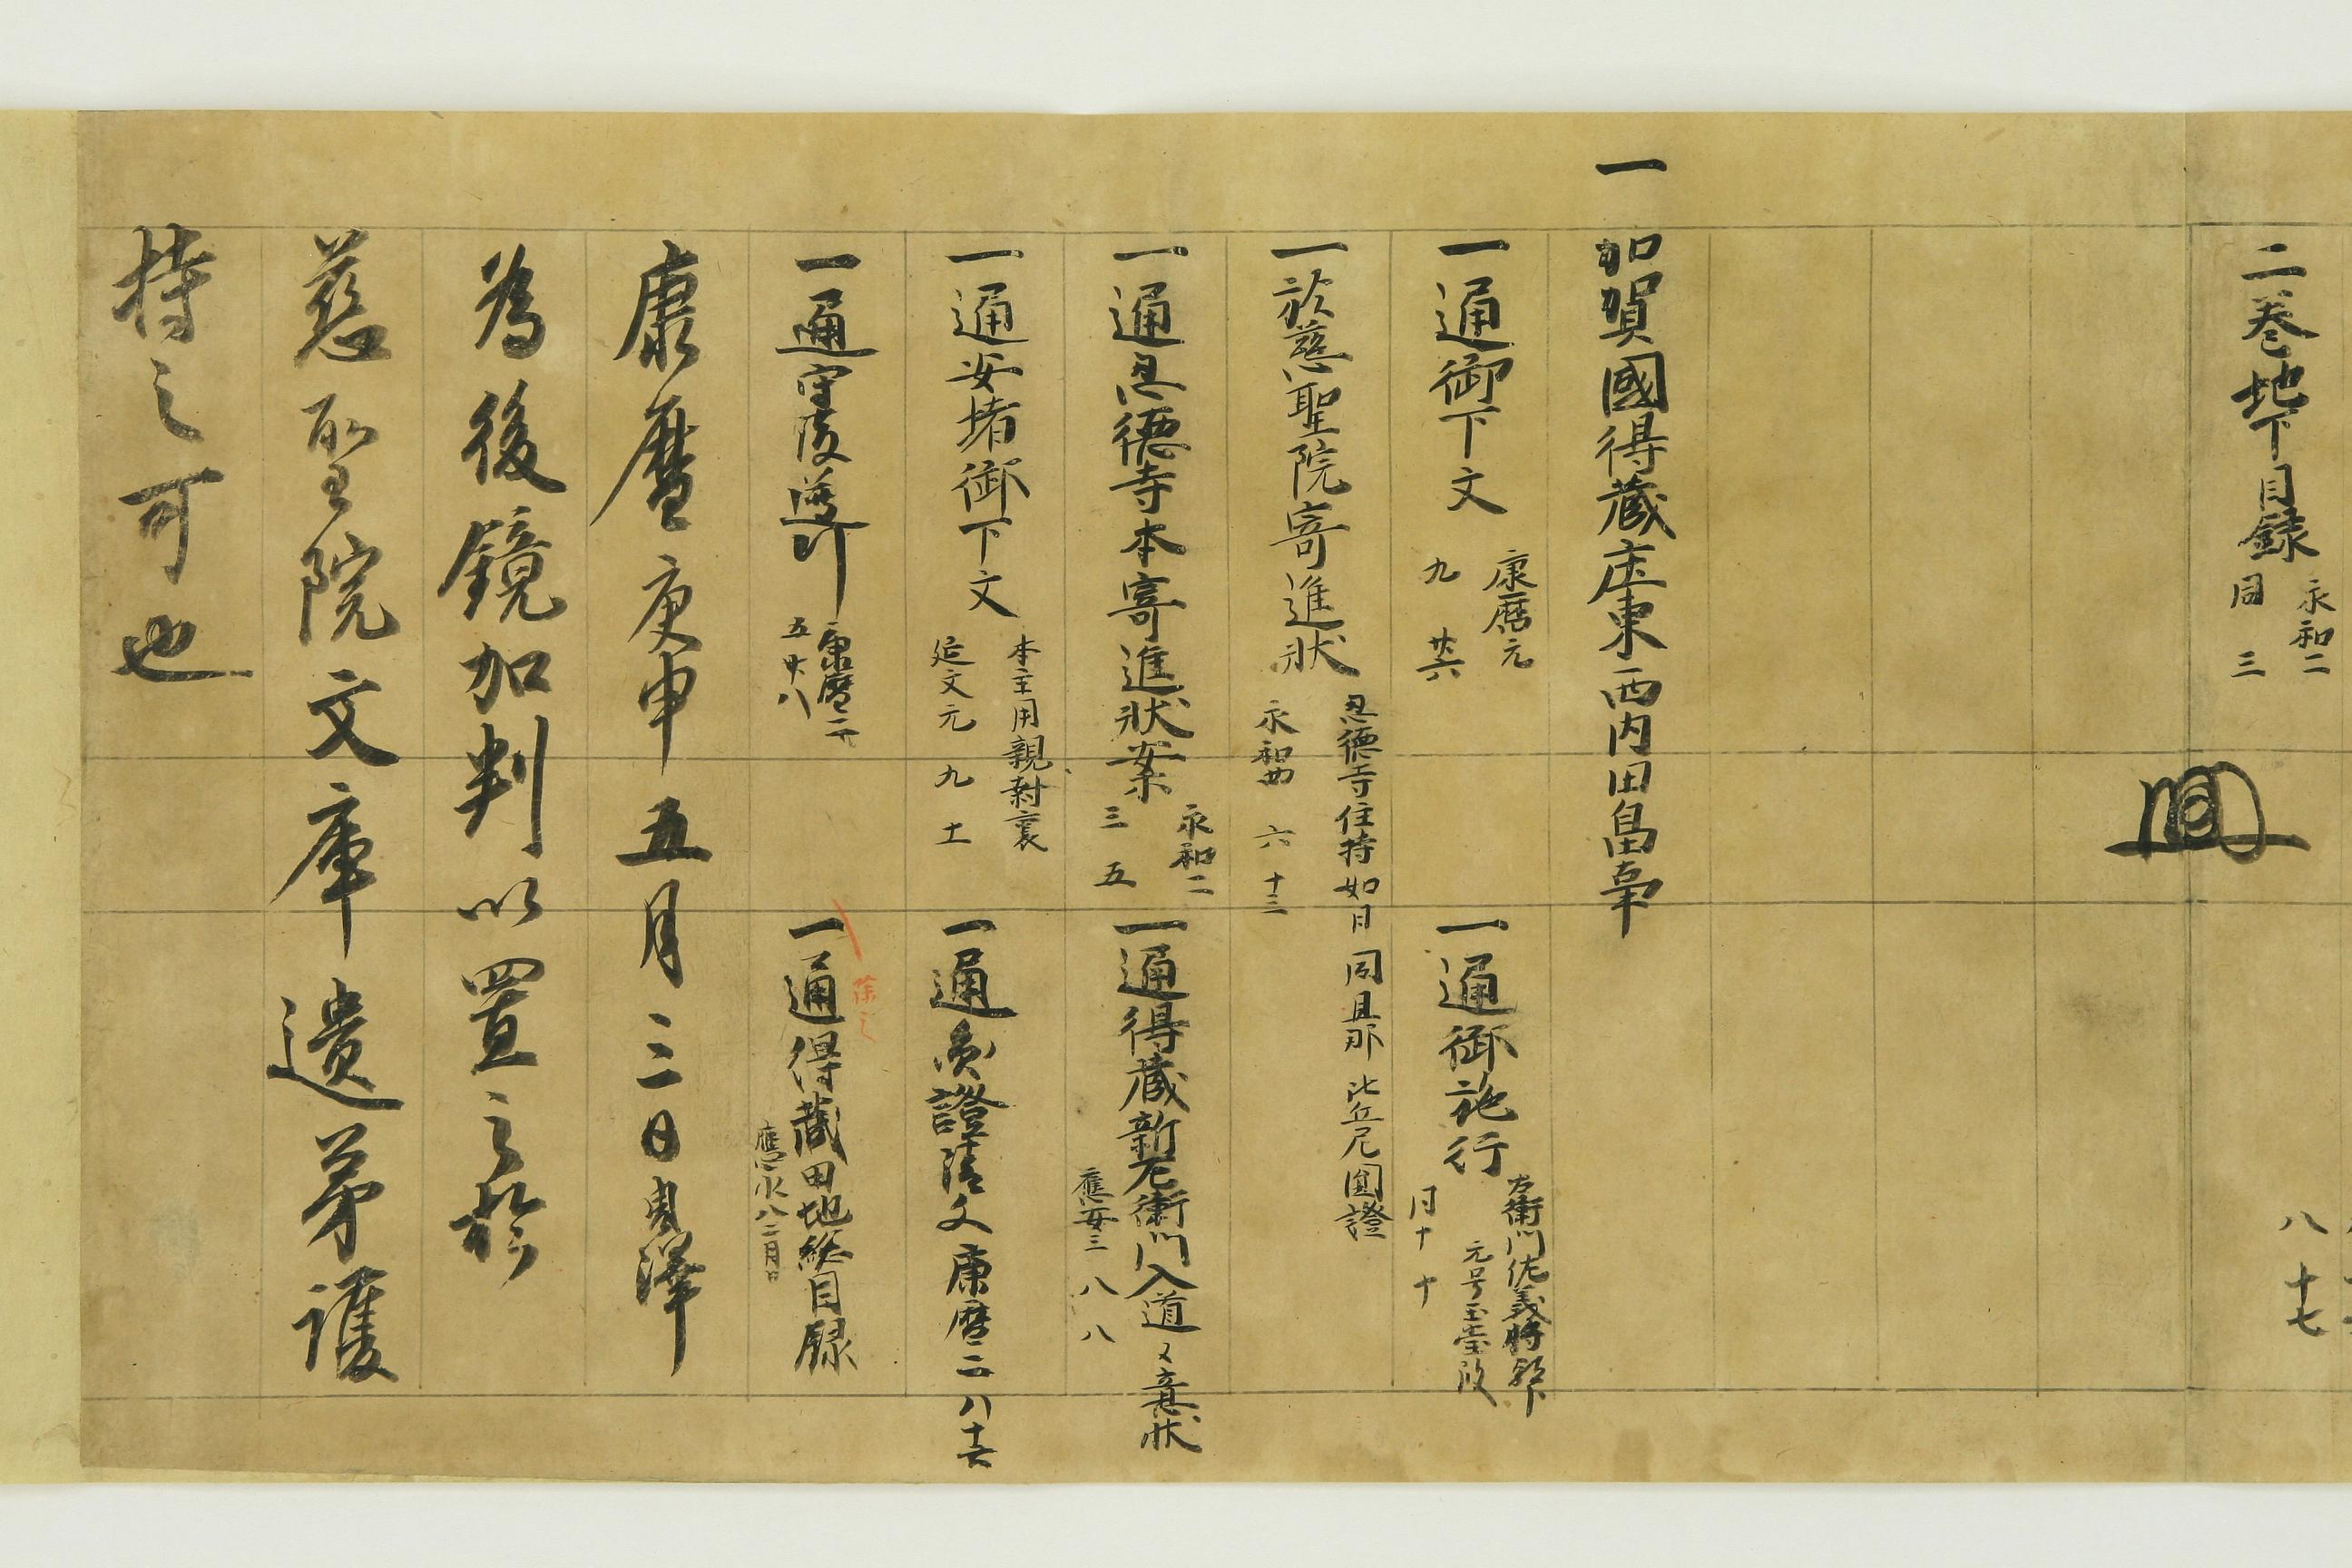 二巻地下目録 永和二
同 三
八 十七
一 加賀國得蔵庄東西内田畠事
一通御下文 康暦元
九 廿六
一通御施行 左衛門佐義将
同十 十
一於慈聖院寄進状 忍徳寺住持如日 同旦那 比丘尼圓證
永和四 六 十三
一通忍徳寺本寄進状案 永和二
三 五
一通得蔵新左衛門入道々意状
應安三 八 八
一通安堵御下文 本主用親封裏
延文元 九 十一
一通圓證請文 康暦二 八 十六
一通守護遵行 康暦二
五 廿八
一通得蔵田地総目録
應永八二月日
除之
康暦庚申五月三日周澤
為後鏡加判以置之於
慈聖院文庫遺弟護
持之可也